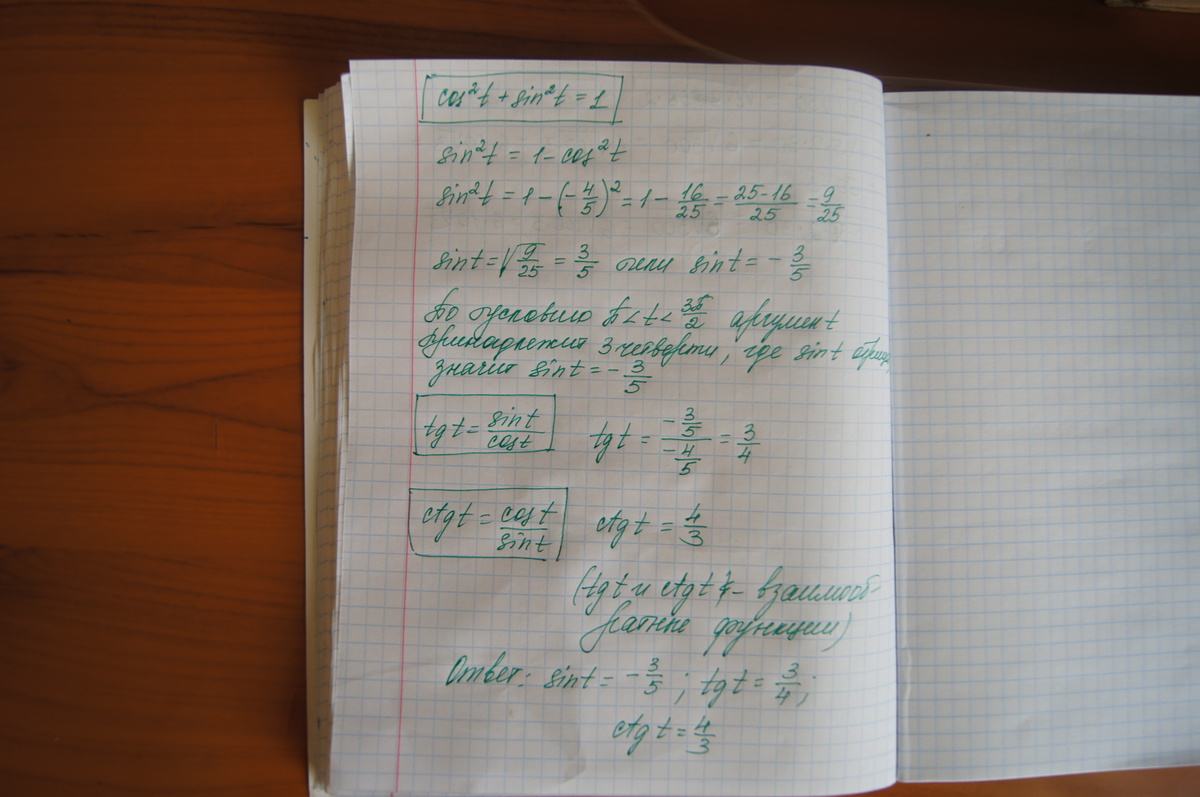 cos²t + sin²t = 1
sin²t = 1 - cos²t
sin²t = 1 - (-4/5)² = 1 - 16/25 = (25-16)/25 = 9/25
sin t = √(9/25) = 3/5 или sin t = -3/5
По условию π < t < 3π/2 аргумент
принадлежит 3 четверти, где sin t
значит sin t = -3/5
tg t = sin t/cos t tg t = (-3/5)/(-4/5) = 3/4
ctg t = cos t/sin t ctg t = 4/3
(tg t и ctg t - взаимооб-
ратные функции)
Ответ: sin t = -3/5; tg t = 3/4;
ctg t = 4/3